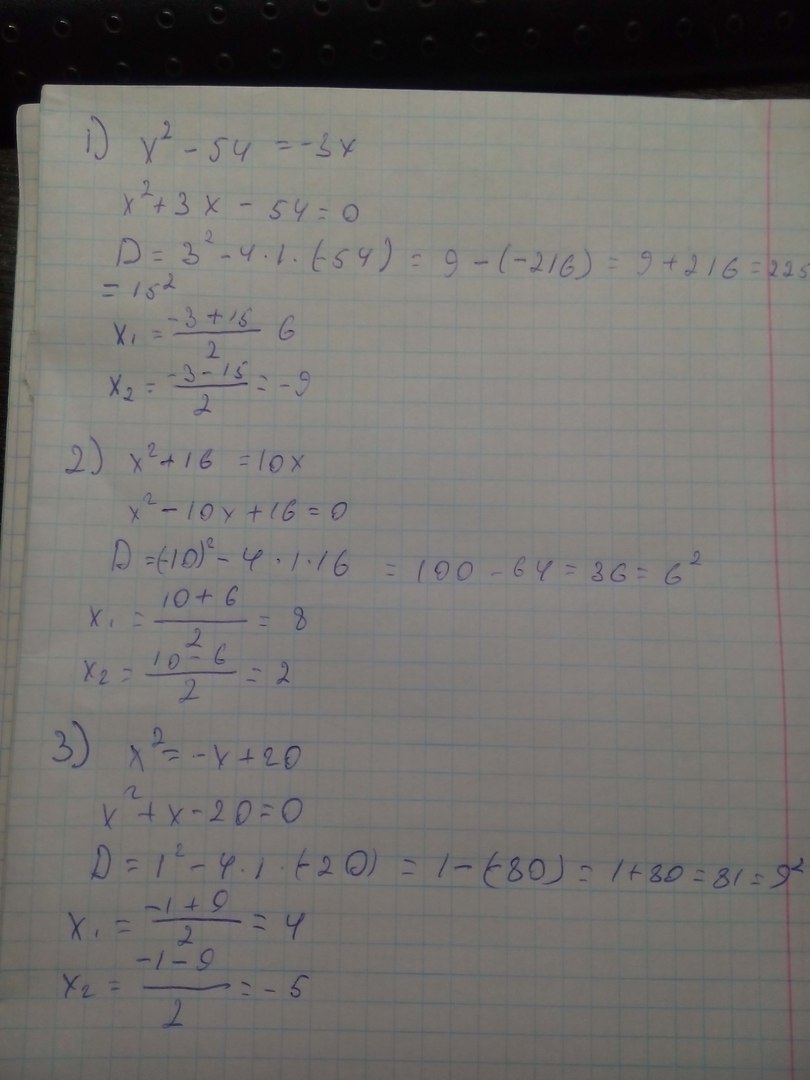 1) x² - 54 = -3x
x² + 3x - 54 = 0
D = 3² - 4 · 1 · (-54) = 9 - (-216) = 9 + 216 = 225
= 15²
x₁ = (-3 + 15)/2 6
x₂ = (-3 - 15)/2 = -9
2) x² + 16 = 10x
x² - 10x + 16 = 0
D = (-10)² - 4 · 1 · 16 = 100 - 64 = 36 = 6²
x₁ = (10 + 6)/2 = 8
x₂ = (10 - 6)/2 = 2
3) x² = -x + 20
x² + x - 20 = 0
D = 1² - 4 · 1 · (-20) = 1 - (-80) = 1 + 80 = 81 = 9²
x₁ = (-1 + 9)/2 = 4
x₂ = (-1 - 9)/2 = -5